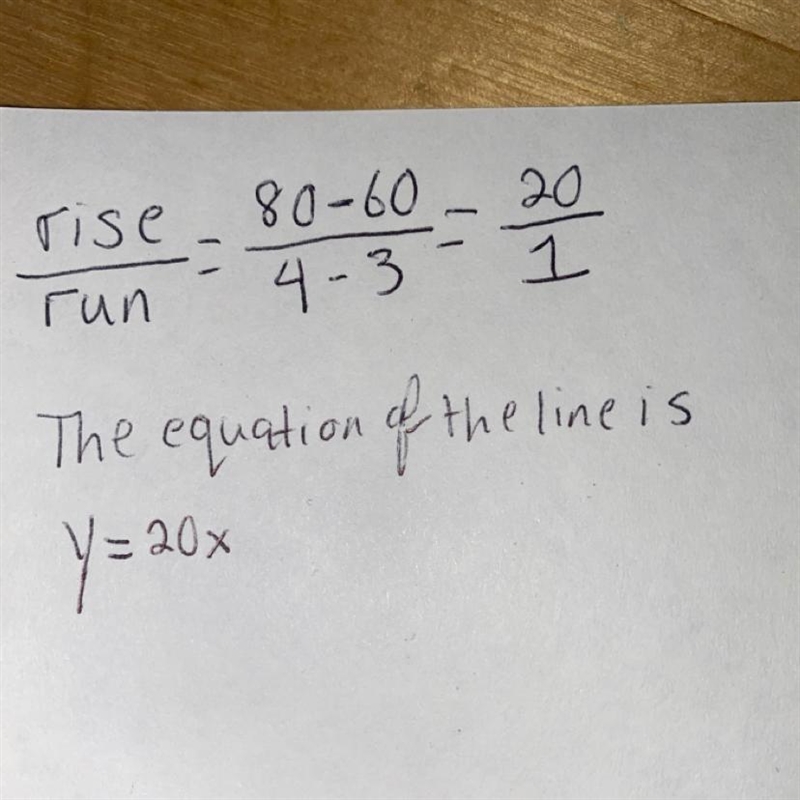 rise/run = 80-60/4-3 = 20/1
The equation of the line is
y=20x